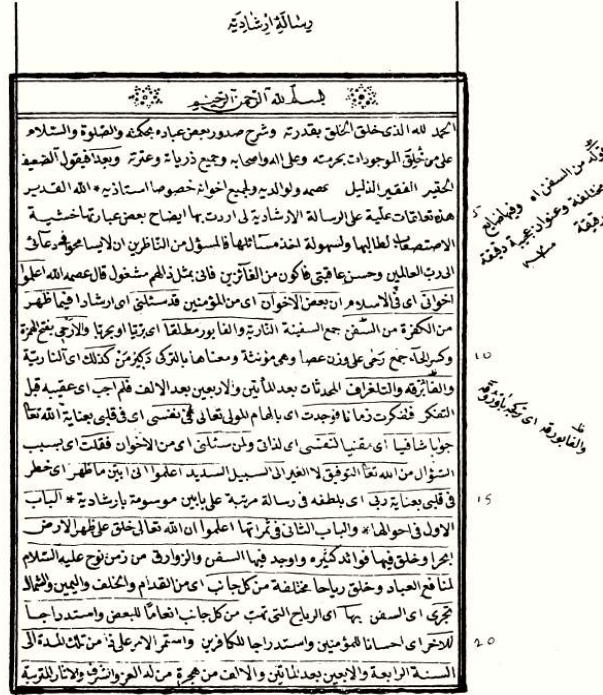 رسالة ارشادية
بسم الله الرحمن الرحيم
الحمد لله الذى خلق الخلق بقدرته وشرح صدور بعض عباده بحكمته والصلوة والسلام
على من خلق الموجودات بحرمته وعلى اله واصحابه وجميع ذرياته وعترته وبعد فيقول الضعيف
الحقير الفقير الذليل عصمه ولوالديه ولجميع اخوانه خصوصا استاذيه * الله القدير
هذه تعليقات علية على الرسالة الارشادية لى اردت بها ايضاح بعض عبارتها خشية
لطالبها ولسهولة اخذ مسائلها فالمسؤل من الناظرين ان لا
رب العالمين وحسن عاقبتى فاكون من الفائزين فانى بمثل ذلهم مشغول قال عصمه الله اعلموا
اخوانى اى فى الاسلام ان بعض الاخوان اى من المؤمنين قد سئلنى اى ارشادا فيما ظهر
من الكفرة من السفن جمع السفينة النارية والفابور مطلقا اى بريا او بحريا والارحى بفتح الهمزة
وكسر الحاء جمع رحى على وزن عصا وهى مؤنثة ومعناها بالتركى دكيرمن كذلك اى النارية
والفابرقه والتلغراف المحدثات بعد المأتين والاربعين بعد الالف فلم اجب اى عقيبه قبل
التفكر فتفكرت زمانا فوجدت اى بالهام المولى تعالى فى نفسى اى فى قلبى بعناية الله تعالى
جوابا شافيا اى مقنعا لنفسى اى لذاتى ولمن سئلنى اى من الاخوان فقلت اى بسبب
السؤال من الله تعالى التوفيق لا الغير الى السبيل السديد اعلموا انى ابين ما ظهر اى خطر
فى قلبى بعناية ربى اى بلطفه فى رسالة مرتبة على بابين موسومة بارشادية * الباب
الاول فى احوالها * والباب الثانى فى ثمراتها اعلموا ان الله تعالى خلق على ظهر الارض
ابحرا وخلق فيها فوائد كثيره واوجد فيها السفن والزوارق من زمن نوح عليه السلام
لمنافع العباد وخلق رياحا مختلفة من كل جانب اى من القدام والخلف واليمين والشمال
تجرى اى السفن بها اى الرياح التى تهب من كل جانب انعاما للبعض واستدراجا
للاخر اى احسانا للمؤمنين واستدراجا للكافرين واستمر الامر على هذا من تلك المدة الى
السنة الرابعة والاربعين بعد المأتين والالف من هجرة من له العز والشرف والاثار المترتبة
من السفن اه وفيها صنايع
مختلفة وعنوان عجيبة دقيقة
10
والفابورقه اى
15
20